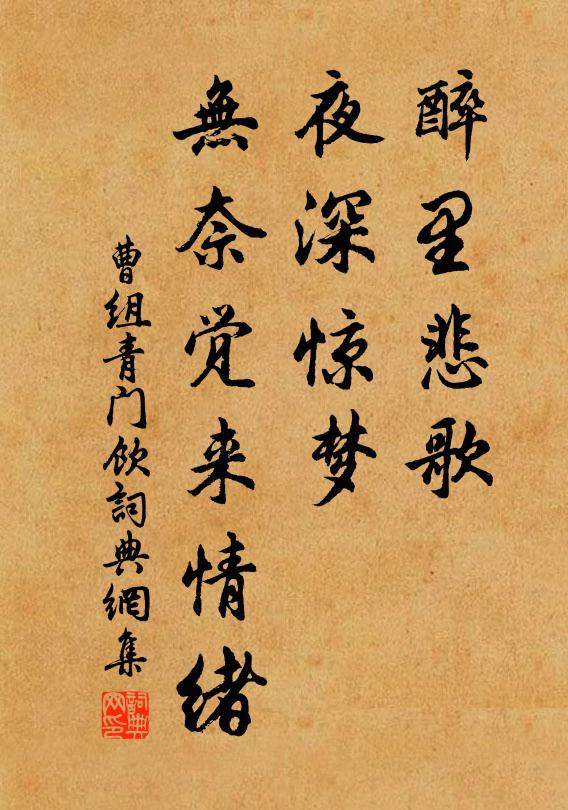 醉里悲歌
夜深惊梦
無奈觉来情绪
曹组青门飲詞典網集
詞典网印